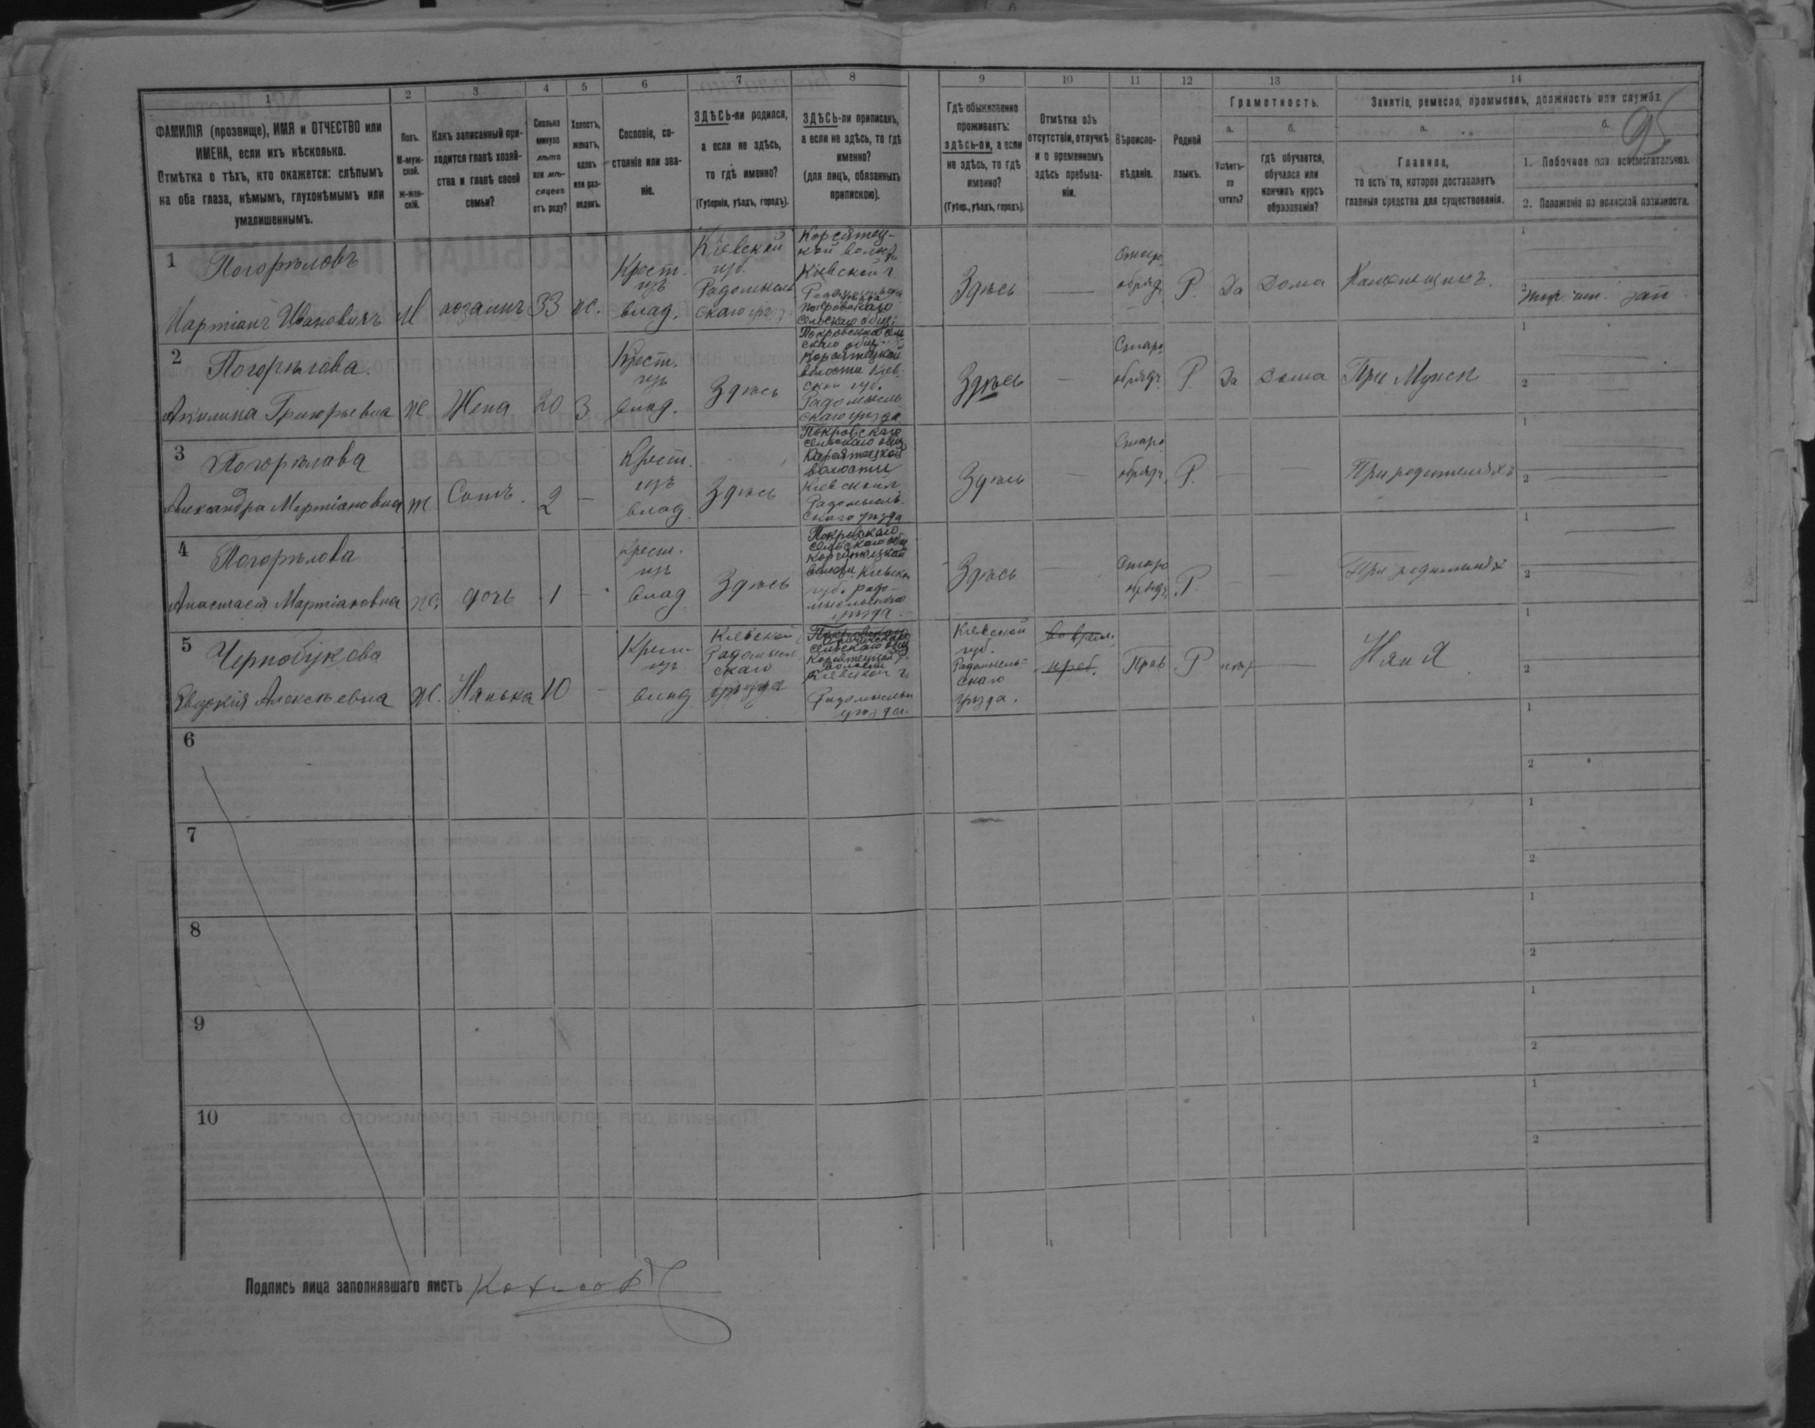 95
1 2 3 4 5 6 7 8 9 10 11 12 13 14
ФАМИЛІЯ (прозвище), ИМЯ и ОТЧЕСТВО или
ИМЕНА, если ихъ нѣсколько.
Отмѣтка о тѣхъ, кто окажется: слѣпымъ
на оба глаза, нѣмымъ, глухонѣмымъ или
умалишеннымъ.
Полъ.
М-муж-
ской.
Ж-жен-
скій.
Какъ записанный при-
ходится главѣ хозяй-
ства и главѣ своей
семьи?
Сколько
минуло
лѣтъ
или мѣ-
сяцевъ
отъ роду?
Холостъ,
женатъ,
вдовъ
или раз-
веденъ.
Сословіе, со-
стояніе или зва-
ніе.
ЗДѢСЬ-ли родился,
а если не здѣсь,
то гдѣ именно?
(Губернія, уѣздъ, городъ).
ЗДѢСЬ-ли приписанъ,
а если не здѣсь, то гдѣ
именно?
(для лицъ, обязанныхъ
припискою).
Гдѣ обыкновенно
проживаетъ:
здѣсь-ли, а если
не здѣсь, то гдѣ
именно?
(Губер., уѣздъ, городъ).
Отмѣтка объ
отсутствіи, отлучкѣ
и о временномъ
здѣсь пребыва-
ніи.
Вѣроиспо-
вѣданіе.
Родной
языкъ.
Грамотность.
а.
Умѣетъ-
ли
читать?
б.
гдѣ обучается,
обучался или
кончилъ курсъ
образованія?
Занятіе, ремесло, промыселъ, должность или служба.
а.
Главное,
то есть то, которое доставляетъ
главныя средства для существованія.
б.
1. Побочное или вспомогательное.
2. Положеніе по воинской повинности.
1 Погорѣловъ
Мартіанъ Ивановичъ М хозаинъ 33 ж. Крест. изъ влад.
Кіевской
губ.
Радомысль
скаго
Кіевской г
Здѣсь — Старо обряд. Р. Да Дома
2 Погорѣлова
Акилина Григорьевна ж Жена 20 З Крест. изъ влад. Здѣсь
волости Кіев.
ской губ.
Радомысль
скаго уѣзда
Здѣсь — Старо обрядч. Р. Да Дома При Мужѣ
3 Погорѣлава
Александра Мартіановна ж 2 — Крест. изъ влад Здѣсь
Покровскаго
сельскаго общ
волости
Радомысль
скаго уѣзда
Здѣсь — Старо обрядч. Р. — — При родителяхъ
4 Погорѣлова
Анастасія Мартіановна ж. дочь 1 — Крест. изъ влад Здѣсь
Покровскаго
сельскаго общ
губ. Радо-
мысльскаго
уѣзда
Здѣсь — Старо обрядч. Р. — — При родителяхъ
5
Евдокія Алексѣевна ж. Нянька 10 — Крест. изъ влад
Кіевской
Радомысль
скаго
уѣзда
сельскаго общ
волости
Кіевской г
Радомысльск
уѣзда
Кіевской
губ.
Радомысль-
скаго
уѣзда.
во врем.
преб.
Прав Р нѣтъ Няня
6
7
8
9
10
Подпись лица заполнявшаго листъ